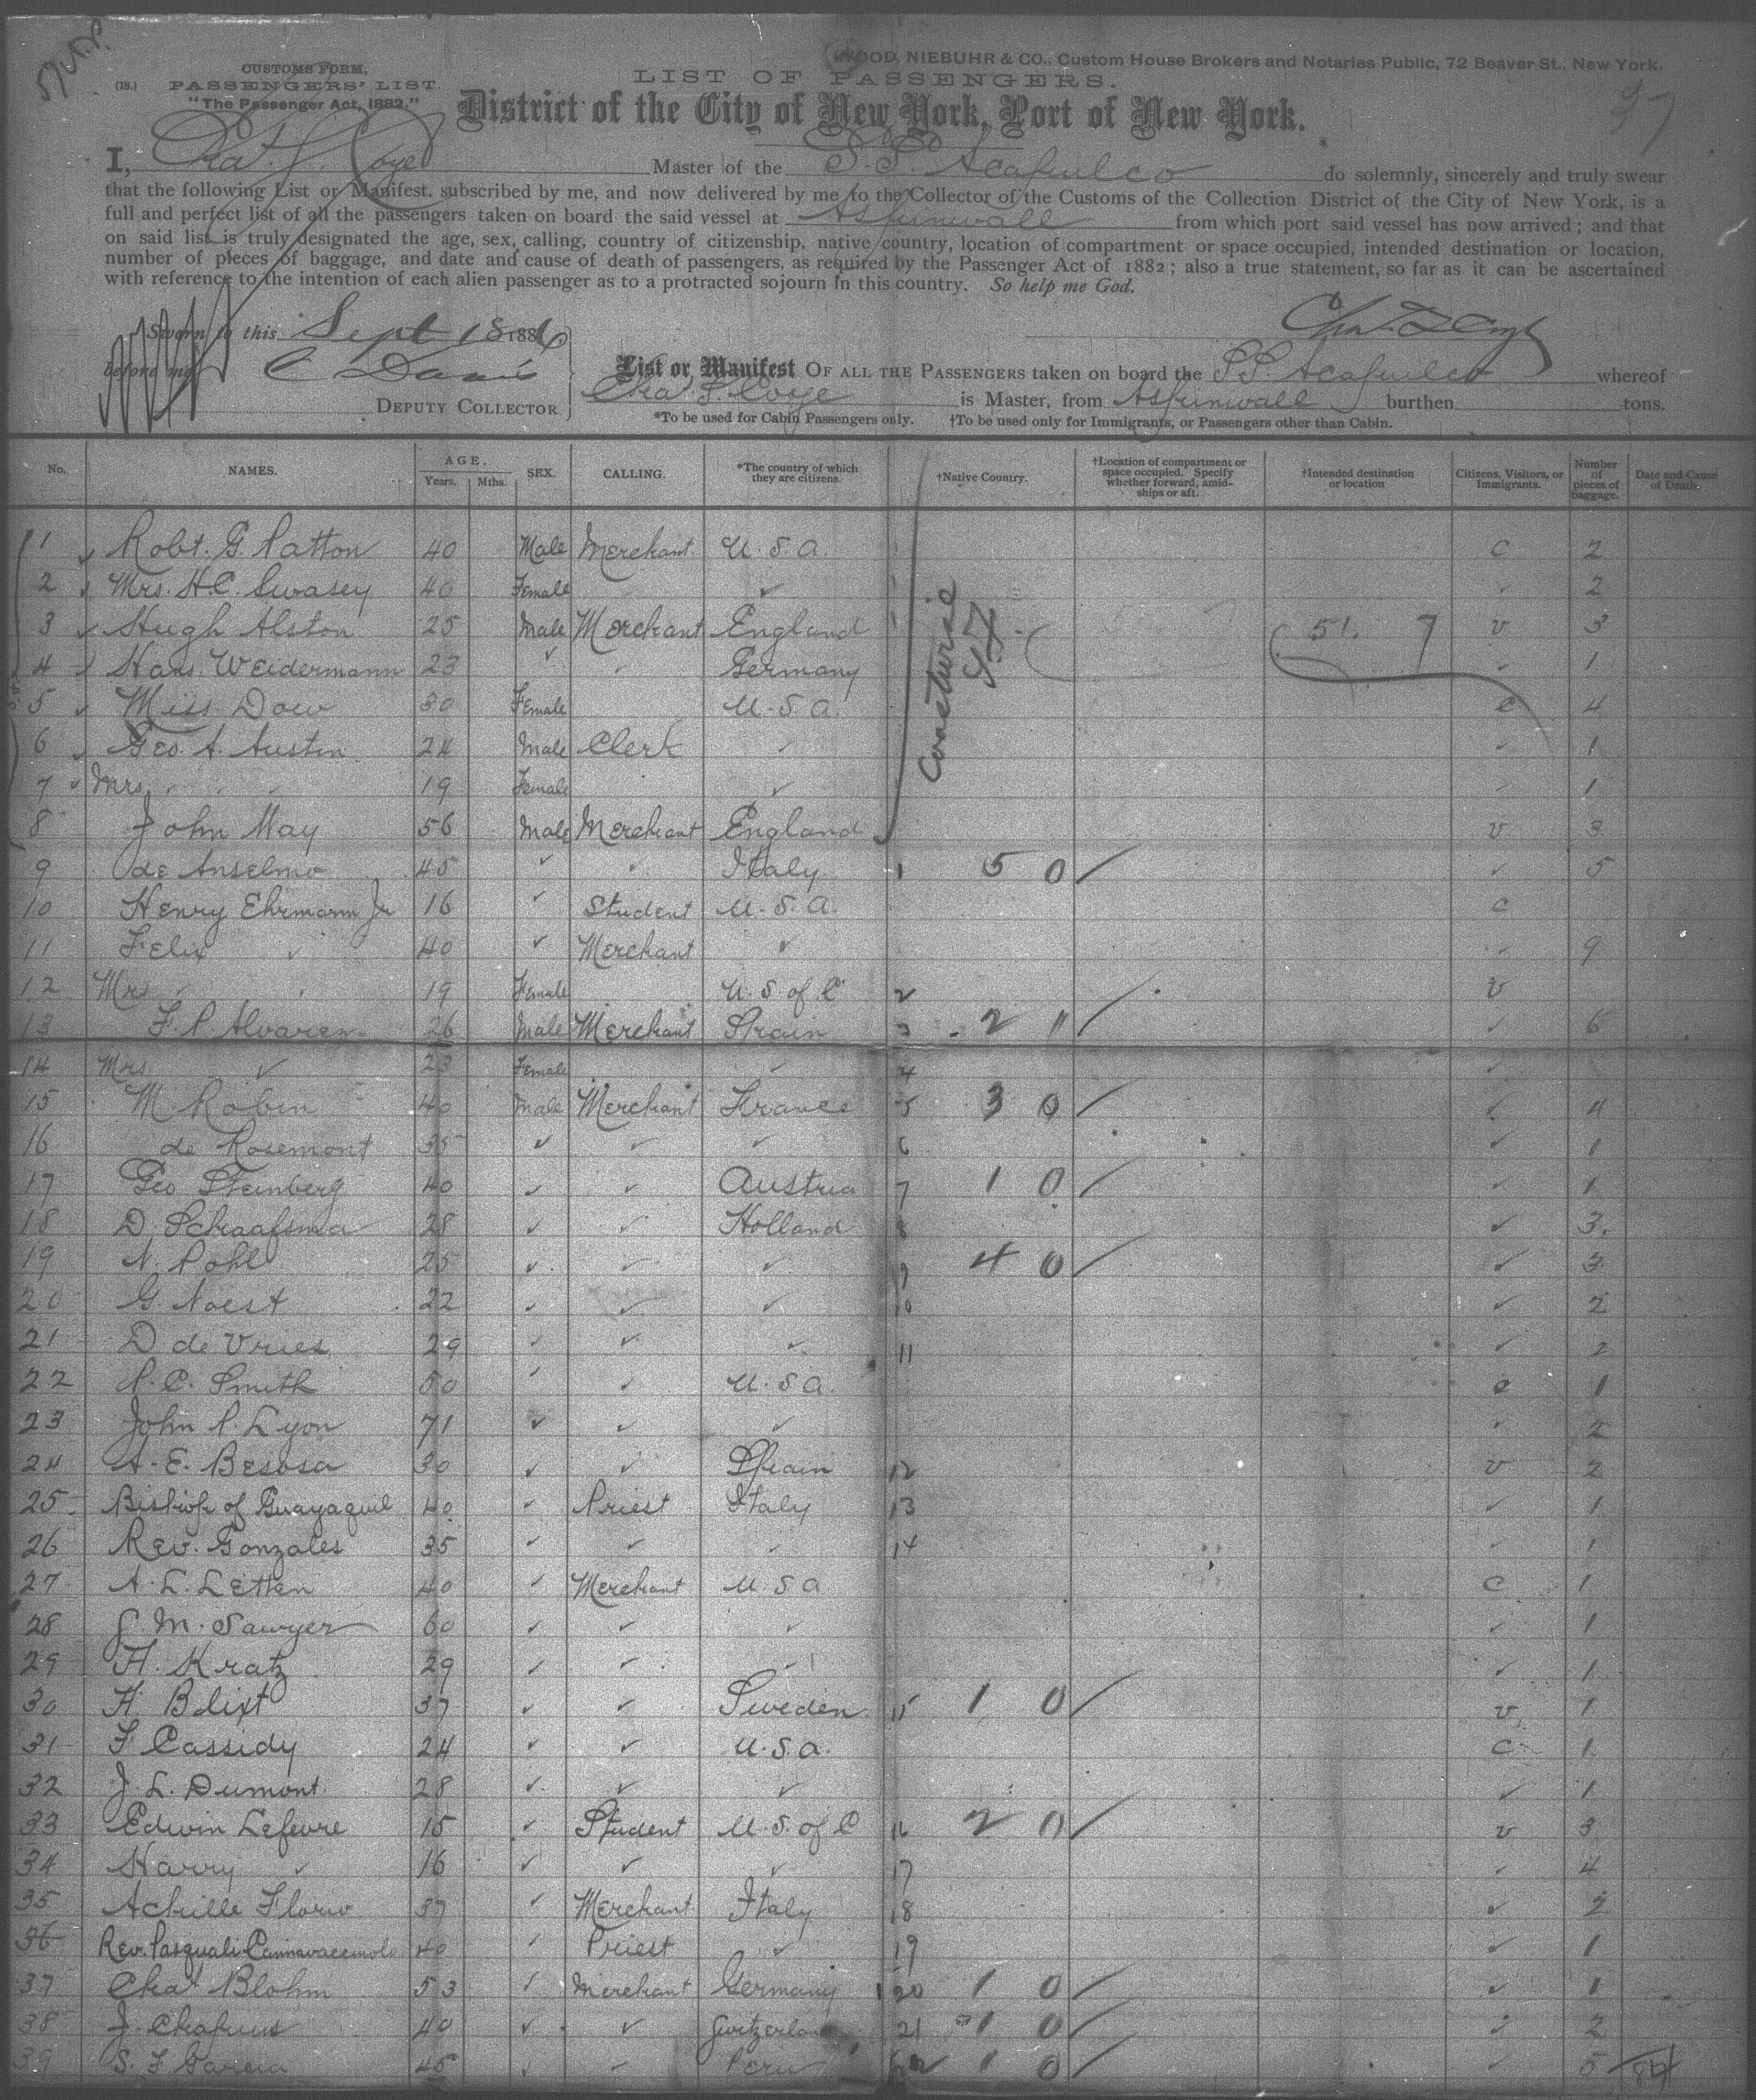 CUSTOMS FORM,
(18.) PASSENGERS' LIST.
"The Passenger Act, 1882."
WOOD, NIEBUHR & CO., Custom House Brokers and Notaries Public, 72 Beaver St., New York.
LIST OF PASSENGERS.
37
District of the City of New York, Port of New York.
I, Chas. F. Coye Master of the S.S. Acapulco do solemnly, sincerely and truly swear
that the following List or Manifest, subscribed by me, and now delivered by me to the Collector of the Customs of the Collection District of the City of New York, is a
full and perfect list of all the passengers taken on board the said vessel at Aspinwall from which port said vessel has now arrived; and that
on said list is truly designated the age, sex, calling, country of citizenship, native country, location of compartment or space occupied, intended destination or location,
number of pieces of baggage, and date and cause of death of passengers, as required by the Passenger Act of 1882; also a true statement, so far as it can be ascertained
with reference to the intention of each alien passenger as to a protracted sojourn in this country. So help me God.
Sworn to this Sept 18 1886
before me C Davis
DEPUTY COLLECTOR
List or Manifest OF ALL THE PASSENGERS taken on board the S.S. Acapulco whereof
Chas. F. Coye is Master, from Aspinwall burthen tons.
*To be used for Cabin Passengers only. †To be used only for Immigrants, or Passengers other than Cabin.
No. NAMES. AGE. Years. Mths. SEX. CALLING. *The country of which they are citizens. †Native Country. †Location of compartment or space occupied. Specify whether forward, amidships or aft. †Intended destination or location Citizens, Visitors, or Immigrants. Number of pieces of baggage. Date and Cause of Death.
1 ✓ Robt. G. Patton 40 Male Merchant U.S.A. C 2
2 ✓ Mrs. H.C. Swasey 40 Female ✓ ✓ 2
3 ✓ Hugh Alston 25 Male Merchant England 51. 7 V 3
4 ✓ Hans Weidermann 23 ✓ ✓ Germany ✓ 1
5 ✓ Miss Dow 30 Female U.S.A. C 4
6 ✓ Geo. A. Austin 24 Male Clerk ✓ ✓ 1
7 ✓ Mrs. ✓ ✓ ✓ 19 Female ✓ ✓ 1
8 John May 56 Male Merchant England V 3
Coastwise
9 de Anselmo 45 ✓ ✓ Italy 1 5 0 ✓ 5
10 Henry Ehrmann Jr 16 ✓ Student U.S.A. C
11 Felix ✓ 40 ✓ Merchant ✓ ✓ 9
12 Mrs ✓ ✓ 19 Female U.S. of C 2 V
13 F P Alvarez 26 Male Merchant Spain 3 2 1 ✓ 6
14 Mrs. ✓ 23 Female ✓ 4 ✓
15 M. Robin 40 Male Merchant France 5 3 0 ✓ 4
16 de Rosemont 35 ✓ ✓ ✓ 6 ✓ 1
17 Geo Steinberg 40 ✓ ✓ Austria 7 1 0 ✓ 1
18 D. Schaafsma 28 ✓ ✓ Holland 8 ✓ 3.
19 N. Pohl 25 ✓ ✓ ✓ 9 4 0 ✓ 3
20 G. Noest 22 ✓ ✓ ✓ 10 ✓ 2
21 D de Vries 29 ✓ ✓ ✓ 11 ✓ 2
22 P.C. Smith 50 ✓ ✓ U.S.A. C 1
23 John P. Lyon 71 ✓ ✓ ✓ ✓ 2
24 A.E. Besosa 30 ✓ ✓ Spain 12 V 2
25 Bishop of Guayaquil 40 ✓ Priest Italy 13 ✓ 1
26 Rev. Gonzales 35 ✓ ✓ ✓ 14 ✓ 1
27 A.L. Letten 40 ✓ Merchant U.S.A C 1
28 M. Sawyer 60 ✓ ✓ ✓ ✓ 1
29 H. Kratz 29 ✓ ✓ ✓ ✓ 1
30 H. Blixt 37 ✓ ✓ Sweden 15 1 0 V 1
31 F Cassidy 24 ✓ ✓ U.S.A. C 1
32 J.L. Dumont 28 ✓ ✓ ✓ ✓ 1
33 Edwin Lefevre 15 ✓ Student U.S. of C 16 2 0 V 3
34 Harry ✓ 16 ✓ ✓ ✓ 17 ✓ 4
35 Achille Florio 37 ✓ Merchant Italy 18 ✓ 2
36 Rev. Pasquali 40 ✓ Priest ✓ 19 ✓ 1
37 Chas Blohm 53 ✓ Merchant Germany 20 1 0 ✓ 1
38 J. Chapuis 40 ✓ ✓ Switzerland 21 1 0 ✓ 2
39 S.F. Garcia 45 ✓ ✓ Peru 22 1 0 ✓ 5